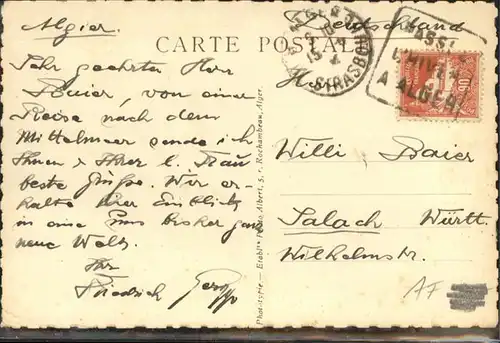 Algier.
Deutschland
CARTE POSTALE
STRASBOURG
PASSEZ
L'HIVER
A ALGER
90
Sehr geehrter Herr
Baier, von einer
Reise nach dem
Mittelmeer sende ich
Ihnen & Ihrer l. Frau
beste Grüße. Wir er-
halten hier Einblick
in eine uns bisher ganz
neue Welt.
Ihr
Friedrich
Herrn
Willi Baier
Salach Württ.
Wilhelmstr.
Phototypie - Etablts Photo Albert, 5, r. Rochambeau, Alger.
AF